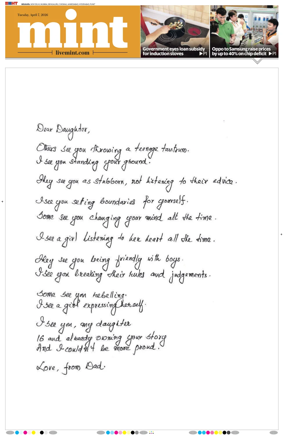 Tuesday, April 7, 2026
mint
livemint.com
Government eyes loan subsidy
for induction stoves ▶P1
Oppo to Samsung raise prices
by up to 40% on chip deficit ▶P1
Dear Daughter,
Others see you throwing a teenage tantrum.
I see you standing your ground.
They see you as stubborn, not listening to their advice.
I see you setting boundaries for yourself.
Some see you changing your mind all the time.
I see a girl listening to her heart all the time.
They see you being friendly with boys.
I see you breaking their rules and judgements.
Some see you rebelling.
I see a girl expressing herself.
I see you, my daughter
16 and already owning your story
And I couldn't be more proud.
Love, from Dad.